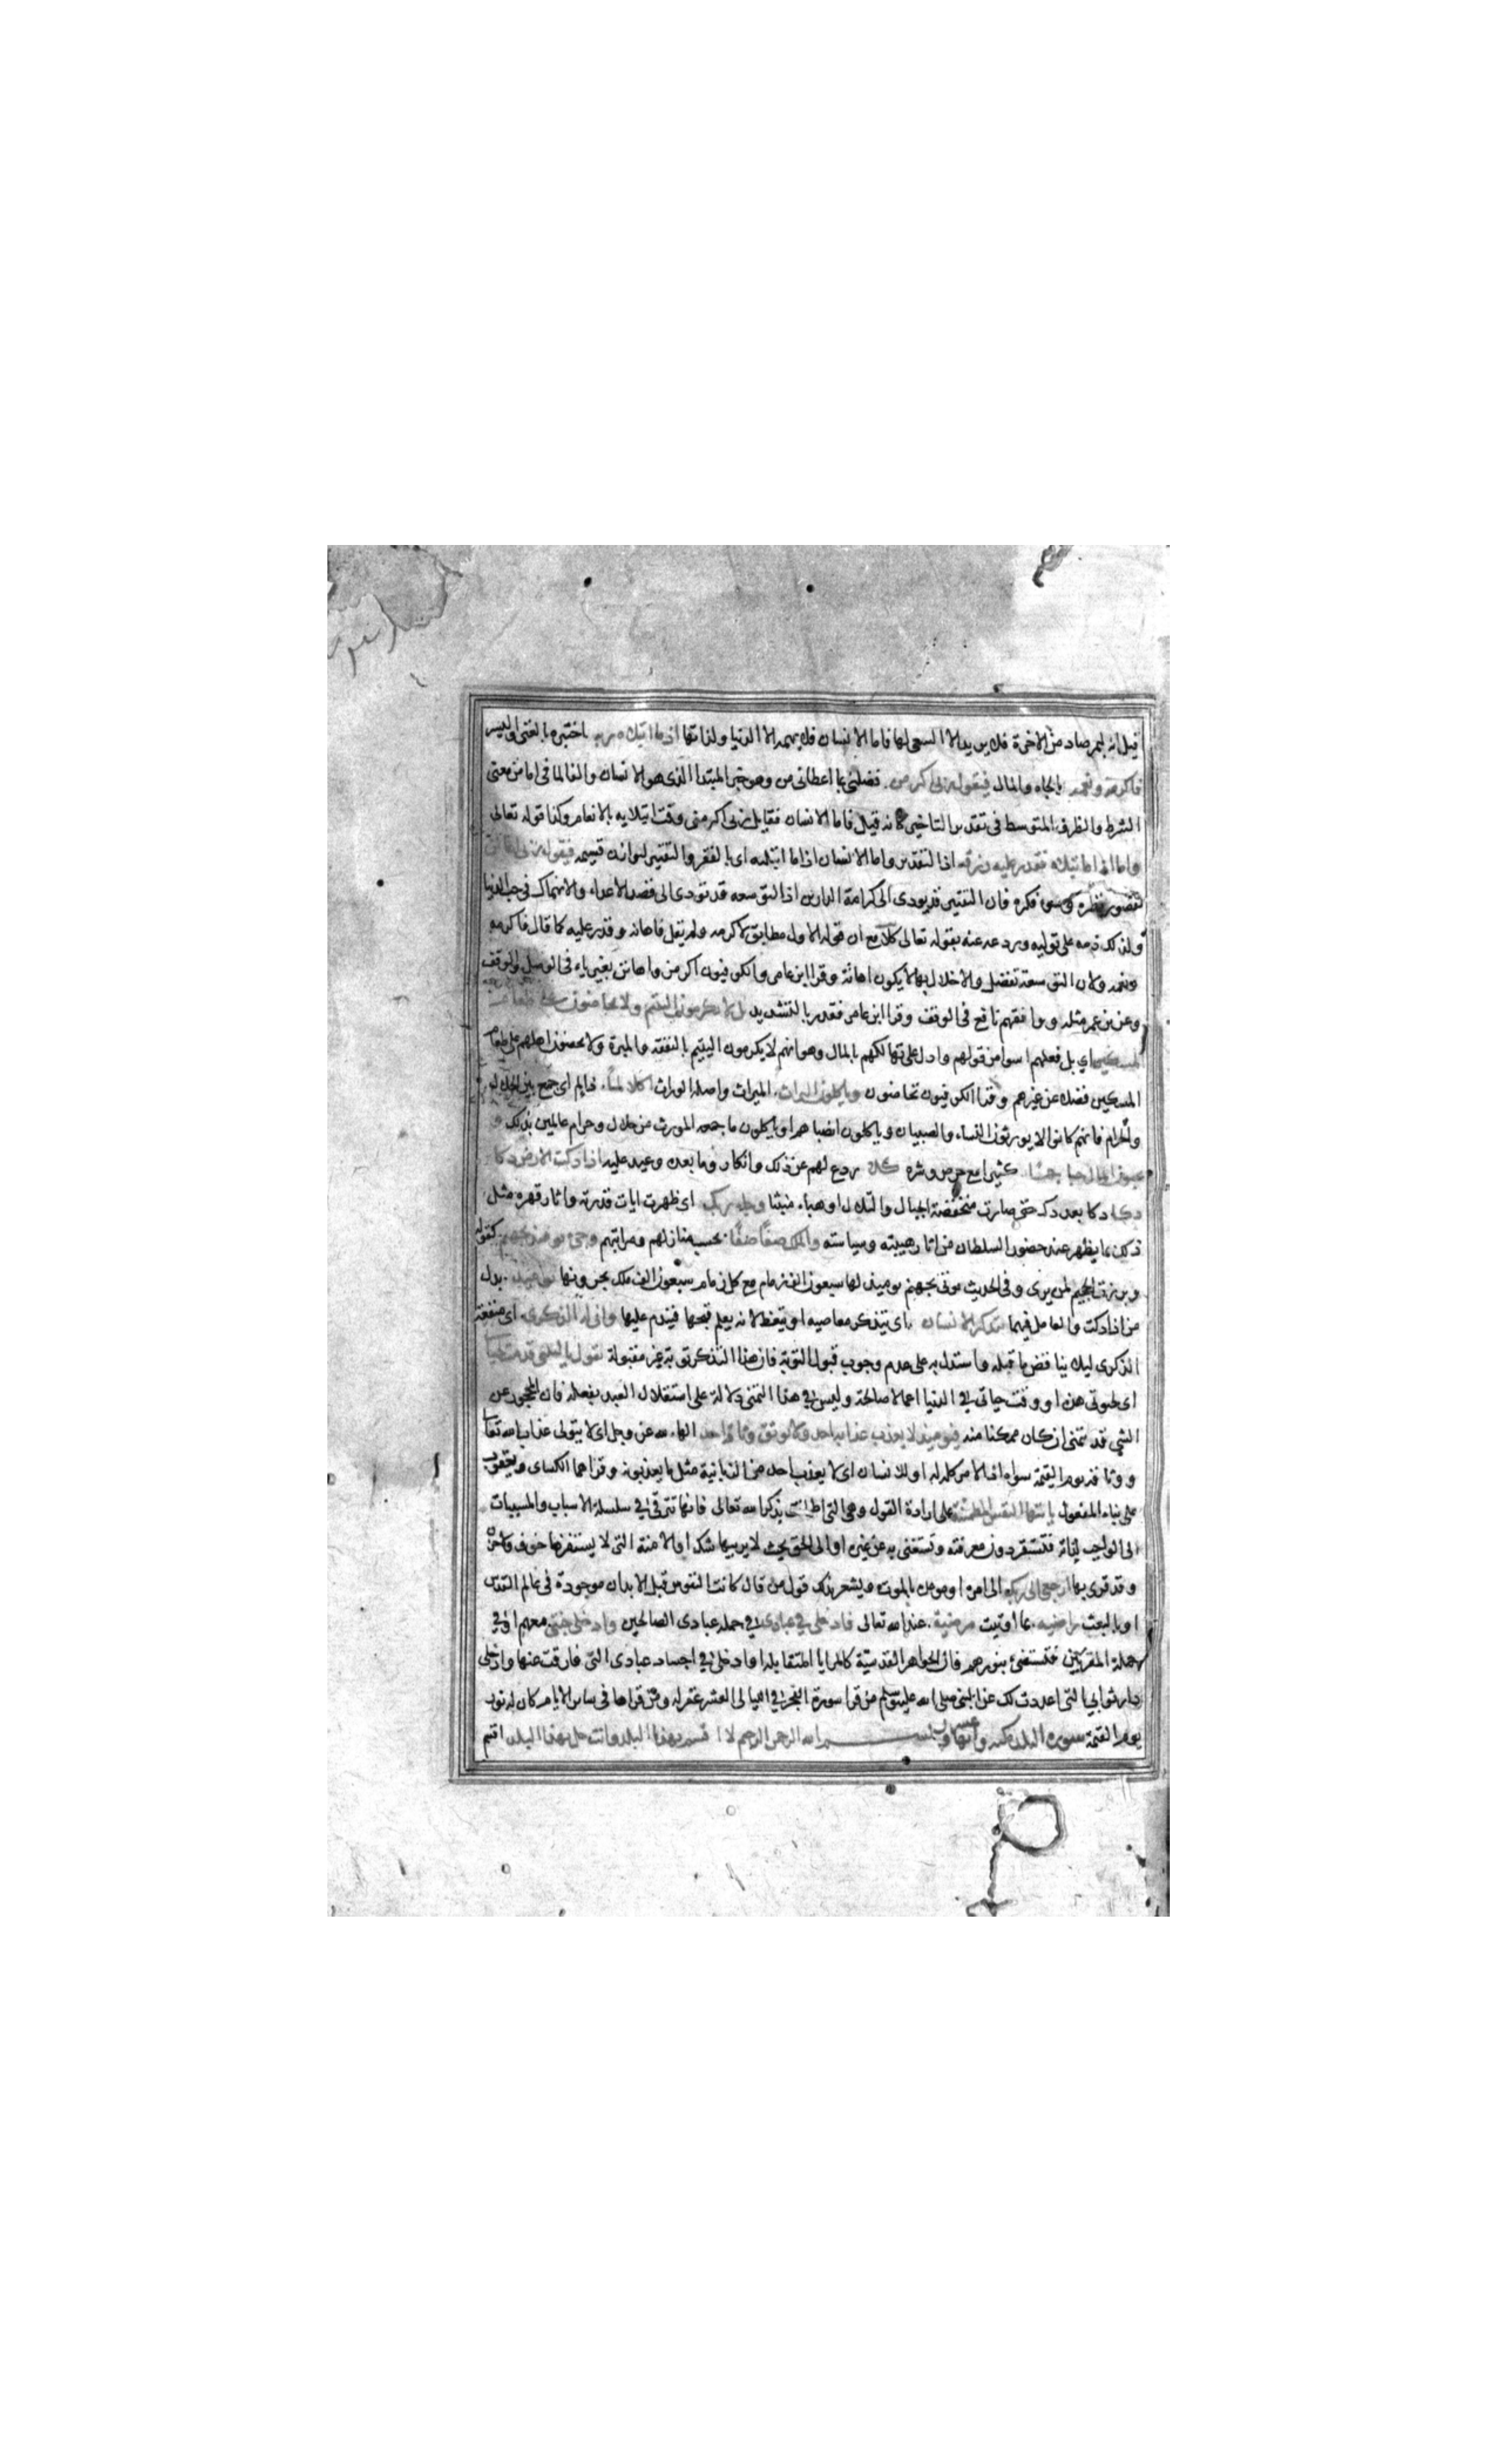 قيل انه لبمرصاد من الاخرة فلا يريد الا السعى لها فاما الانسان فلا يهمه الا الدنيا ولذاتها اذا ما ابتلاه ربه اختبره بالغنى واليسر
فاكرمه ونعمه بالجاه والمال فيقول ربى اكرمن فضلنى بما اعطانى من وهو خبر المبتدا الذى هو الانسان والفا لما فى اما من معنى
الشرط والظرف المتوسط فى تقدير التاخير كانه قيل فاما الانسان فقايل ربى اكرمنى وقت ابتلايه بالانعام وكذا قوله تعالى
واما اذا ما ابتلاه فقدر عليه رزقه اذ التقدير واما الانسان اذا ما ابتلاه اى بالفقر والتقتير ليوازن قسيمه فيقول ربى اهانن
لقصور نظره وسو فكره فان التقتير قد يودى الى كرامة الدارين اذ التوسعه قد تودى الى قصد الاعداء والانهماك فى حب الدنيا
ولذلك ذمه على قوليه وردعه عنه بقوله تعالى كلا مع ان قوله الاول مطابق لاكرمه ولم يقل فاهانه وقدر عليه كما قال فاكرمه
ونعمه ولان التوسعة تفضل والاخلال بها لا يكون اهانة وقرا ابن عامر والكوفيون اكرمن واهانن بغير ياء فى الوصل والوقف
وعن بن عمر مثله ووافقهم نافع فى الوقف وقرا ابن عامر فقدر بالتشديد بل لا تكرمون اليتيم ولا تحاضون على طعام
المسكين اي بل فعلهم اسوا من قولهم وادل على تهالكهم بالمال وهو انهم لا يكرمون اليتيم بالنفقه والمبرة ولا يحضون اهلهم على طعام
المسكين فضلا عن غيرهم وقرا الكوفيون تحاضون وياكلون التراث الميراث واصله الوراث اكلا لما ذا لم اى جمع بين الحلال
والحرام فانهم كانوا لا يورثون النساء والصبيان وياكلون انصباهم او ياكلون ما جمعه المورث من حلال وحرام عالمين بذلك و
يحبون المال حبا جما كثيرا مع حرص وشره كلا ردع لهم عن ذلك وانكار وما بعده وعيد عليه اذا دكت الارض دكا
دكا دكا بعد دك حتى صارت منخفضة الجبال والتلال او هباء منبثا وجاء ربك اى ظهرت ايات قدرته واثار قهره مثل
ذلك بما يظهر عند حضور السلطان من اثار هيبته وسياسته والملك صفا صفا بحسب منازلهم ومراتبهم وجئ يومئذ بجهنم كقوله
وبرزت الجحيم لمن يرى وفى الحديث يوتى بجهنم يوميذ لها سبعون الف زمام مع كل زمام سبعون الف ملك يجرونها يوميذ بدل
من اذا دكت والعامل فيهما يتذكر الانسان اى يتذكر معاصيه او يتعظ لانه يعلم قبحها فيندم عليها وانى له الذكرى اى منفعة
الذكرى ليلا يناقض ما قبله واستدل به على عدم وجوب قبول التوبة فان هذا التذكر توبة غير مقبولة يقول يا ليتنى قدمت لحياتى
اى لحيوتى هذه او وقت حياتى فى الدنيا اعمالا صالحة وليس فى هذا التمنى دلالة على استقلال العبد بفعله فان المحجور عن
الشى قد يتمنى ان كان ممكنا منه فيوميذ لا يعذب عذابه احد ولا يوثق وثاقه احد الهاء لله عز وجل اى لا يتولى عذاب الله تعالى
ووثاقه يوم القيمة سواه اذ الامر كله له او للانسان اى لا يعذب احد من الزبانية مثل ما يعذبونه وقراهما الكساى ويعقوب
على بناء المفعول يا ايتها النفس المطمئنة على ارادة القول وهى التى اطمانت بذكر الله تعالى فانها تترقى فى سلسلة الاسباب والمسببات
الى الواجب لذاته فتستقر دون معرفته وتستغنى به عن غيره او الى الحق بحيث لا يريبها شك او الامنة التى لا يستفزها خوف ولا حزن
وقد قرى بها ارجعى الى ربك الى امره او موعده بالموت ويشعر بذلك قول من قال كانت النفوس قبل الابدان موجودة فى عالم القدس
او بالبعث راضيه بما اوتيت مرضية عند الله تعالى فادخلى فى عبادى فى جمله عبادى الصالحين وادخلى جنتى معهم او فى
جملة المقربين فتستضئ بنورهم فان الجواهر القدسية كالمرايا المتقابله او ادخلى فى اجساد عبادى التى فارقت عنها وادخلى
دار ثوابى التى اعددت لك عن النبى صلى الله عليه وسلم من قرا سورة الفجر فى الليالى العشر غفر له ومن قراها فى ساير الايام كان له نورا
يوم القيمة سورة البلد مكيه وايها عشرون بسم الله الرحمن الرحيم لا اقسم بهذا البلد وانت حل بهذا البلد اقسم